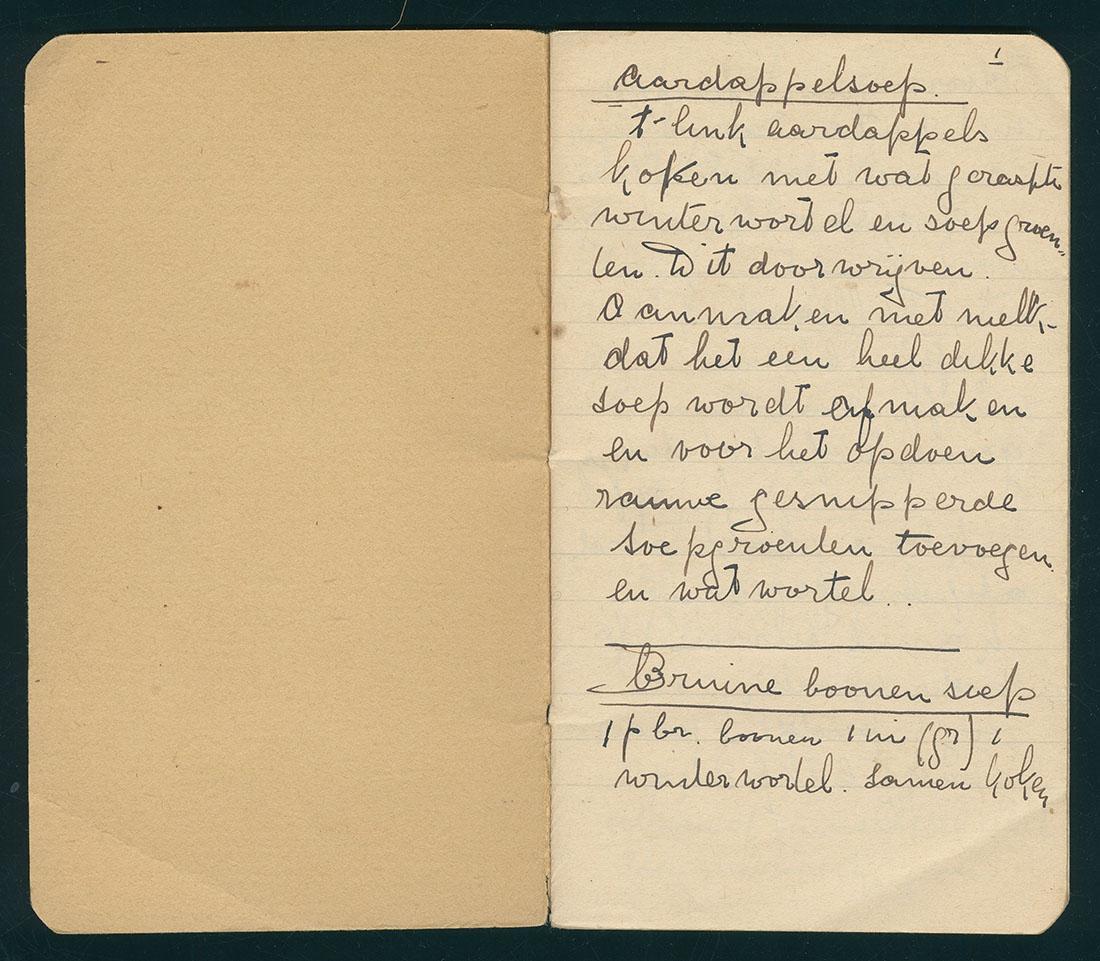 1
Aardappelsoep.
aardappels
koken met wat geraspte
winterwortel en soepgroen-
ten. Dit doorwrijven.
Aanmaken met melk,
dat het een heel dikke
soep wordt afmaken
en voor het opdoen
rauwe gesnipperde
soepgroenten toevoegen
en wat wortel..
Bruine boonen soep
1 p br. boonen 1 ui (gr) 1
winterwortel. samen koken